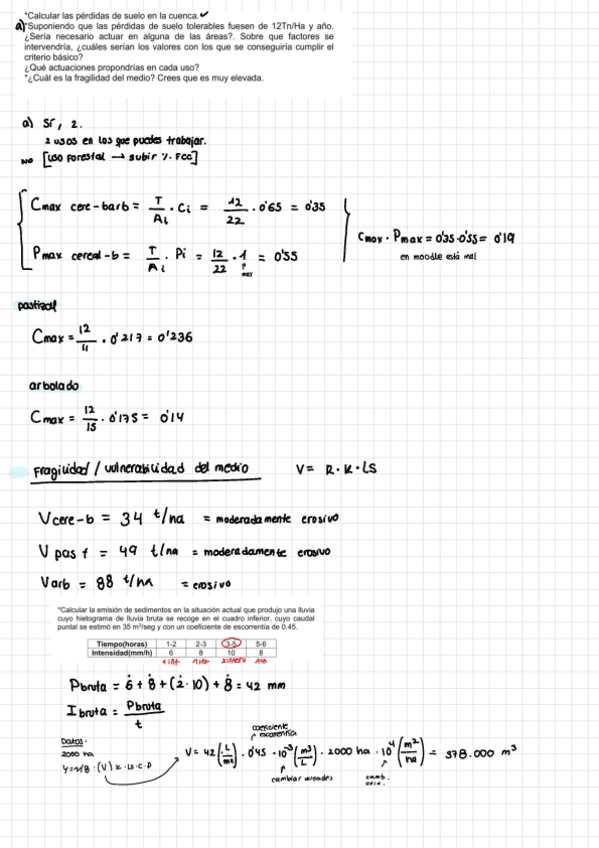 *Calcular las pérdidas de suelo en la cuenca. ✓
a) *Suponiendo que las pérdidas de suelo tolerables fuesen de 12Tn/Ha y año.
¿Sería necesario actuar en alguna de las áreas?. Sobre que factores se
intervendría, ¿cuáles serían los valores con los que se conseguiría cumplir el
criterio básico?
¿Qué actuaciones propondrías en cada uso?
*¿Cuál es la fragilidad del medio? Crees que es muy elevada.
a) Sí, 2.
2 usos en los que puedes trabajar.
NO [uso forestal → subir % FCC]
Cmax cere-barb = T/Ai · Ci = 12/22 · 0'65 = 0'35
Pmax cereal-b = T/Ai · Pi = 12/22 · 1 = 0'55
↑
max
Cmax · Pmax = 0'35 · 0'55 = 0'19
en moodle está mal
pastizal
Cmax = 12/11 · 0'217 = 0'236
arbolado
Cmax = 12/15 · 0'175 = 0'14
Fragilidad / vulnerabilidad del medio V = R · K · LS
Vcere-b = 34 t/ha = moderadamente erosivo
V past = 49 t/ha = moderadamente erosivo
Varb = 88 t/ha = erosivo
*Calcular la emisión de sedimentos en la situación actual que produjo una lluvia
cuyo hietograma de lluvia bruta se recoge en el cuadro inferior, cuyo caudal
puntal se estimó en 35 m³/seg y con un coeficiente de escorrentía de 0.45.
Tiempo(horas) 1-2 2-3 3-5 5-6
Intensidad(mm/h) 6 8 10 8
Pbruta = 6 + 8 + (2 · 10) + 8 = 42 mm
I bruta = Pbruta / t
Datos:
2000 ha
coeficiente
escorrentía
V = 42 (L/m2) · 0'45 · 10⁻³ (m³/L) · 2000 ha · 10⁴ (m²/ha) = 378.000 m³
cambiar unidades